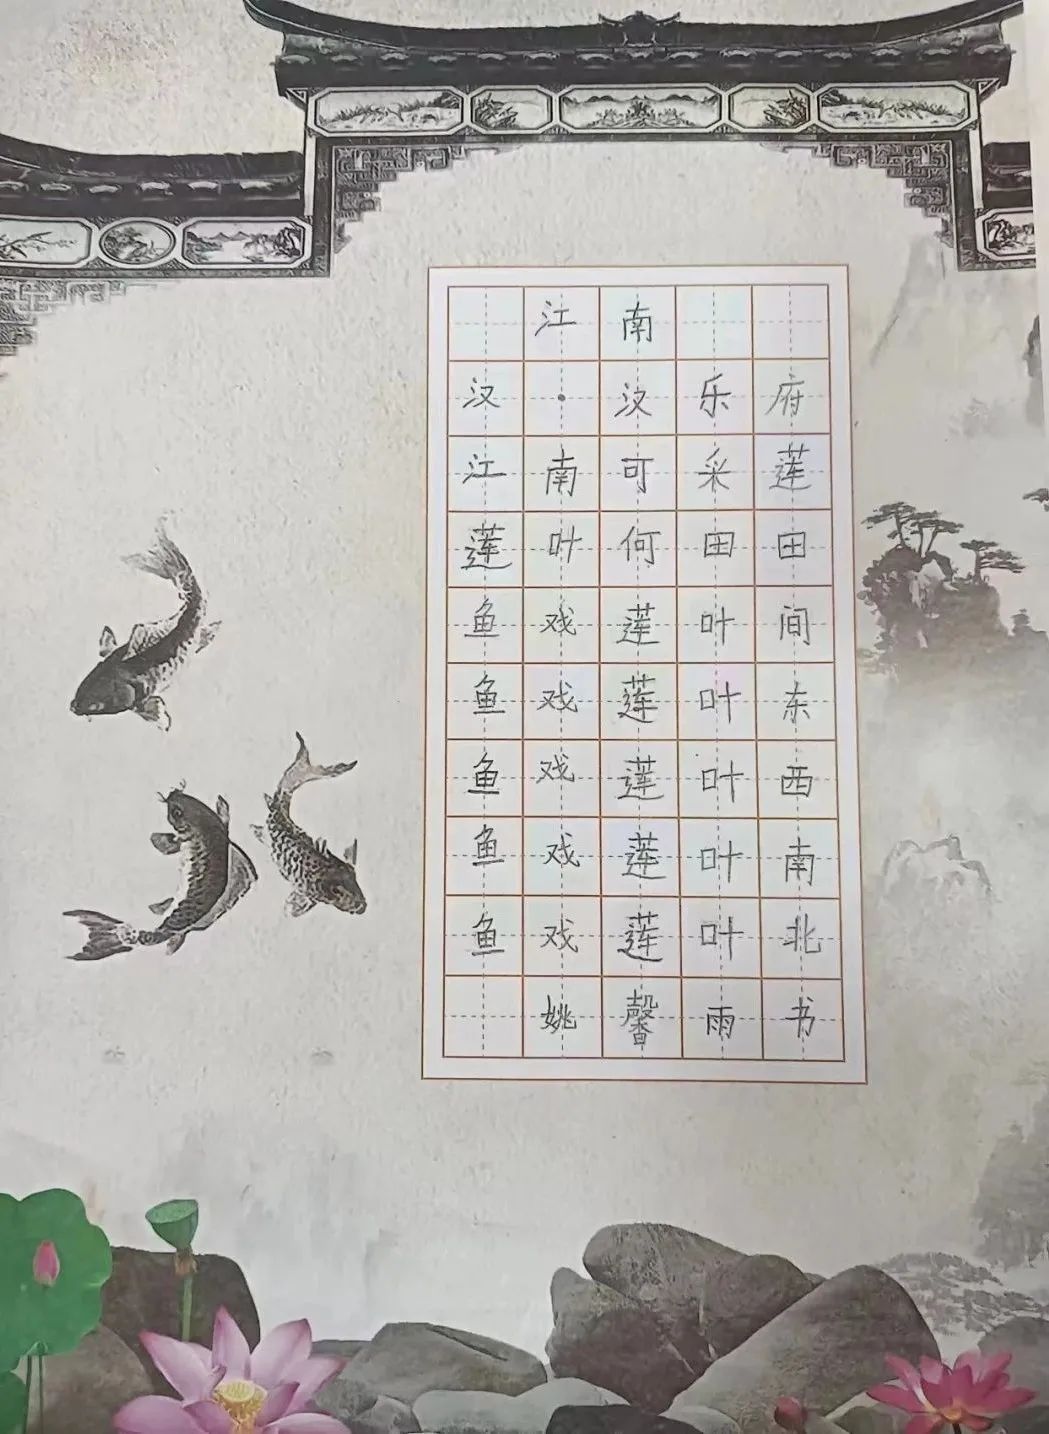 江南
汉·汉乐府
江南可采莲
莲叶何田田
鱼戏莲叶间
鱼戏莲叶东
鱼戏莲叶西
鱼戏莲叶南
鱼戏莲叶北
姚馨雨书